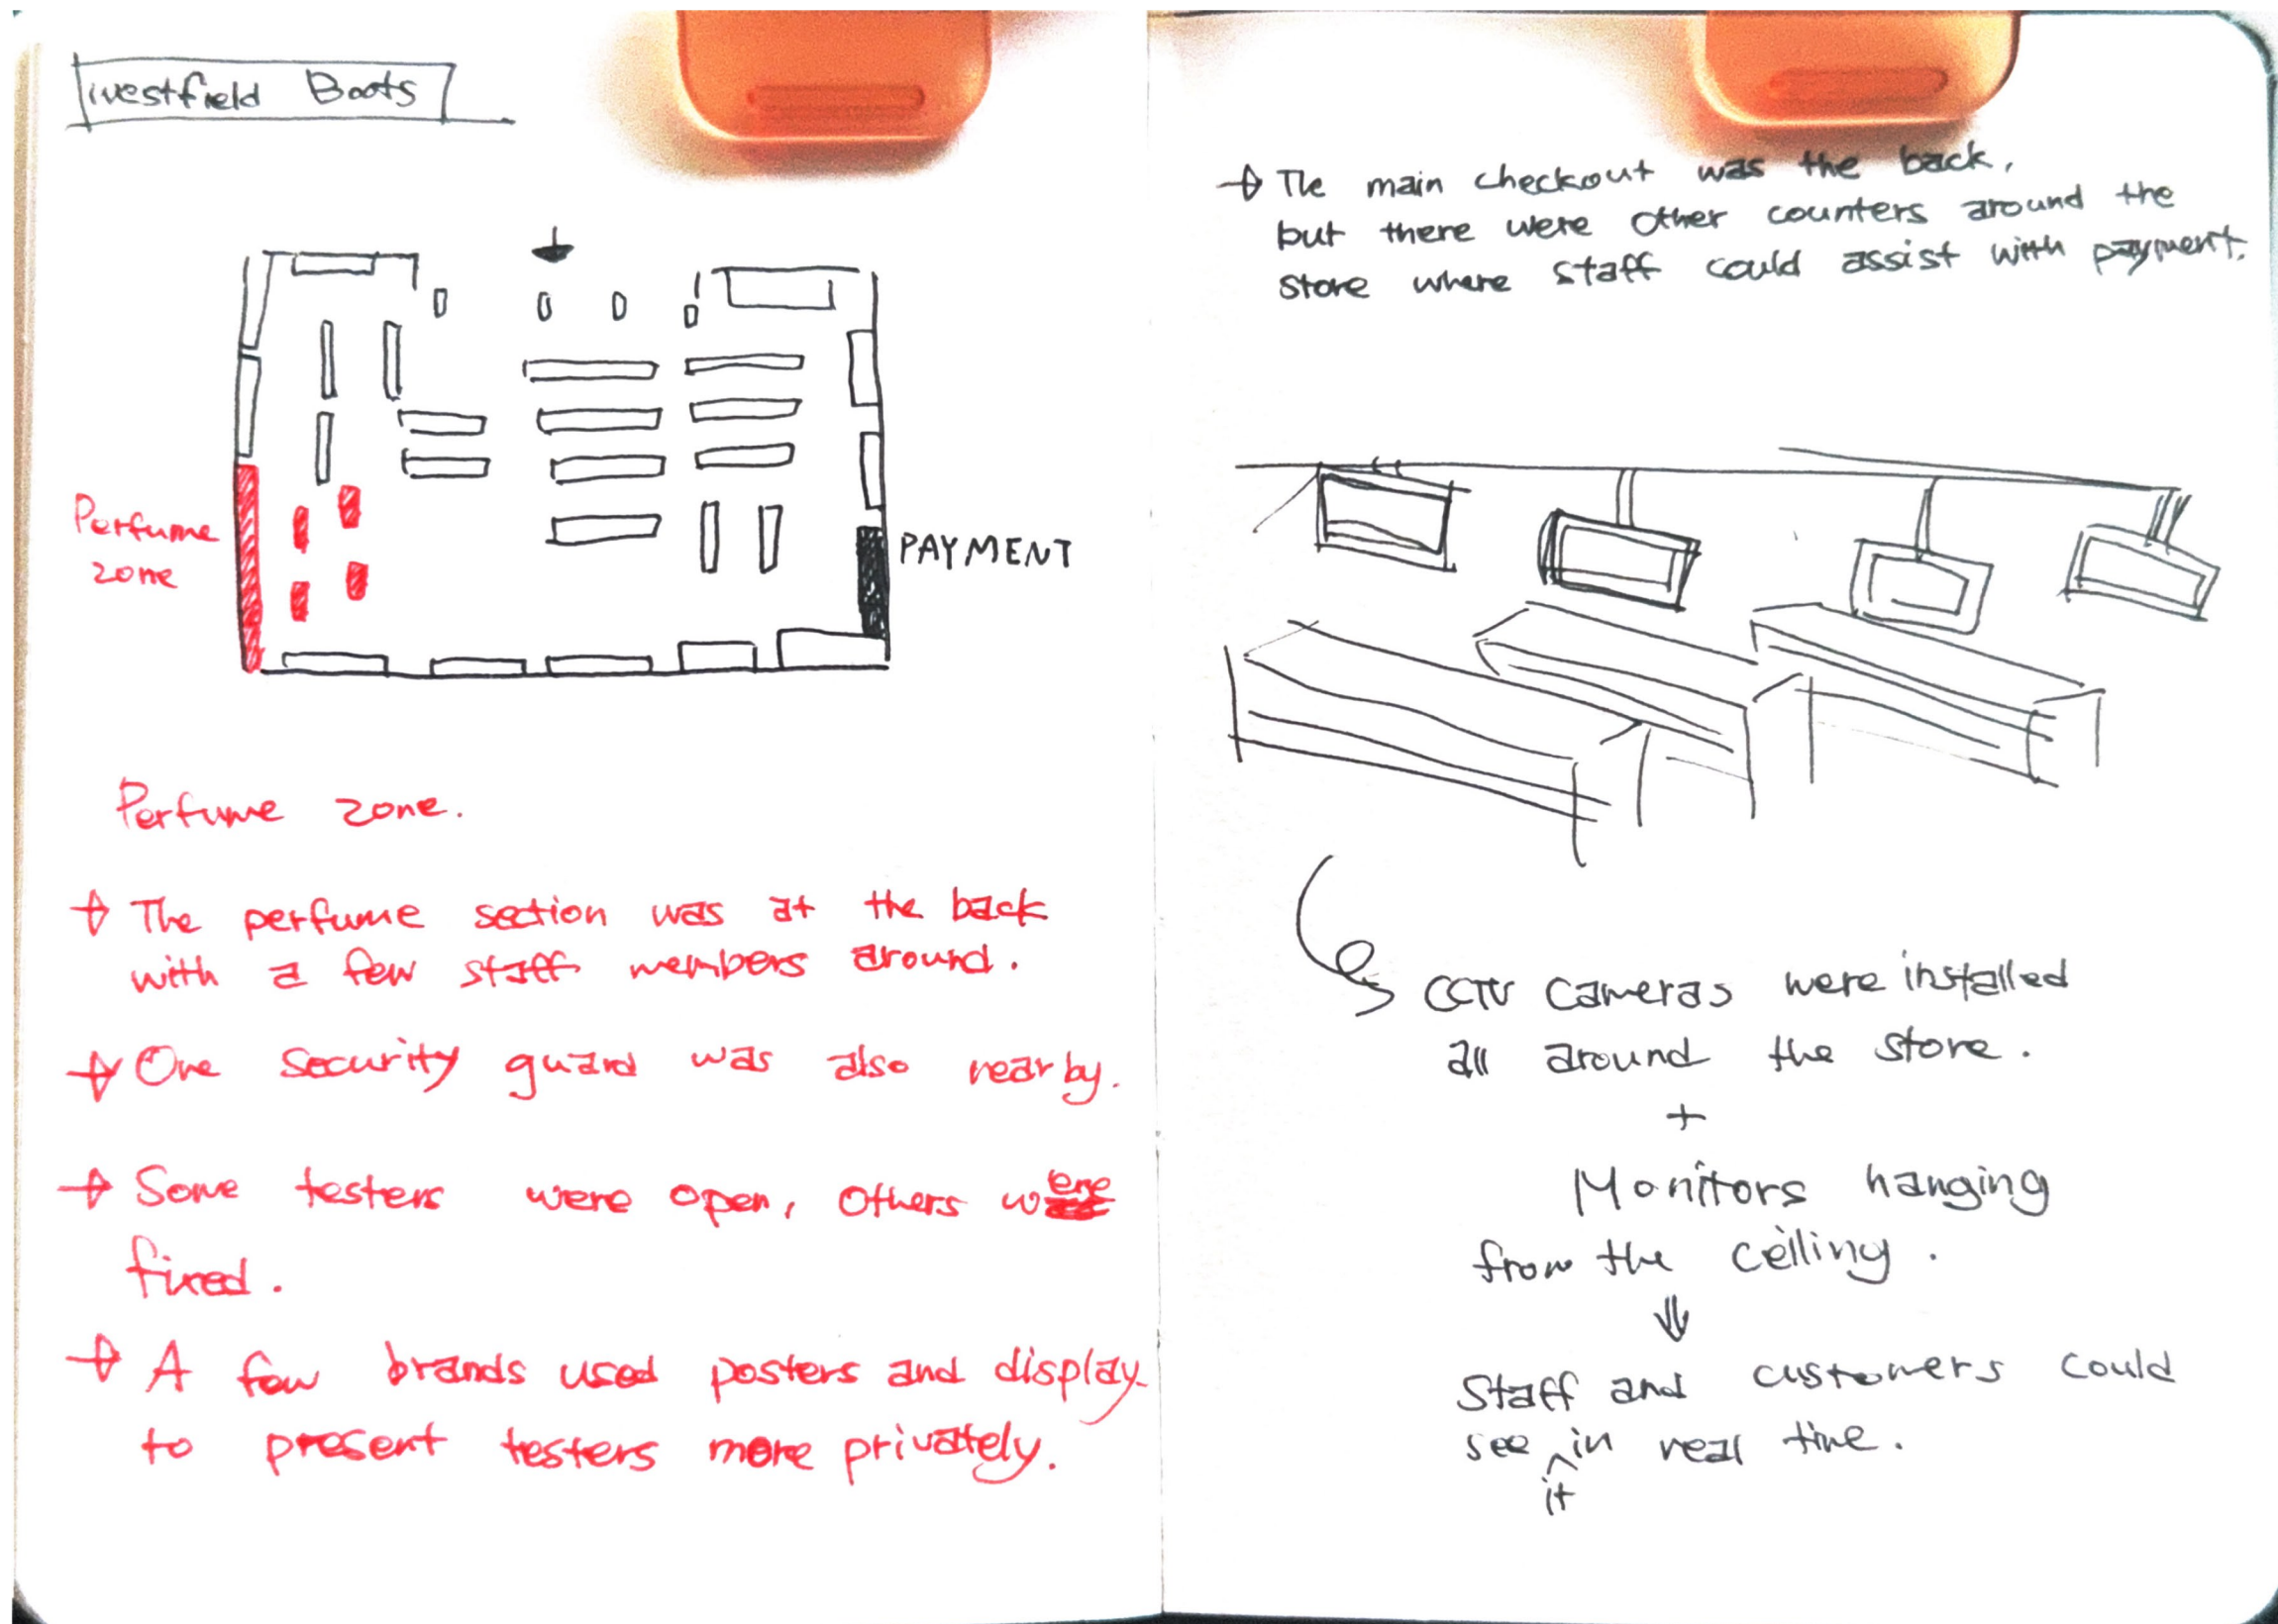 Westfield Boots
Perfume
zone
PAYMENT
Perfume zone.
→ The perfume section was at the back
with a few staff members around.
→ One security guard was also nearby.
→ Some testers were open, others were
fixed.
→ A few brands used posters and display
to present testers more privately.
→ The main checkout was the back,
but there were other counters around the
store where staff could assist with payment.
CCTV cameras were installed
all around the store.
+
Monitors hanging
from the ceilling.
⇓
Staff and customers could
see it in real time.